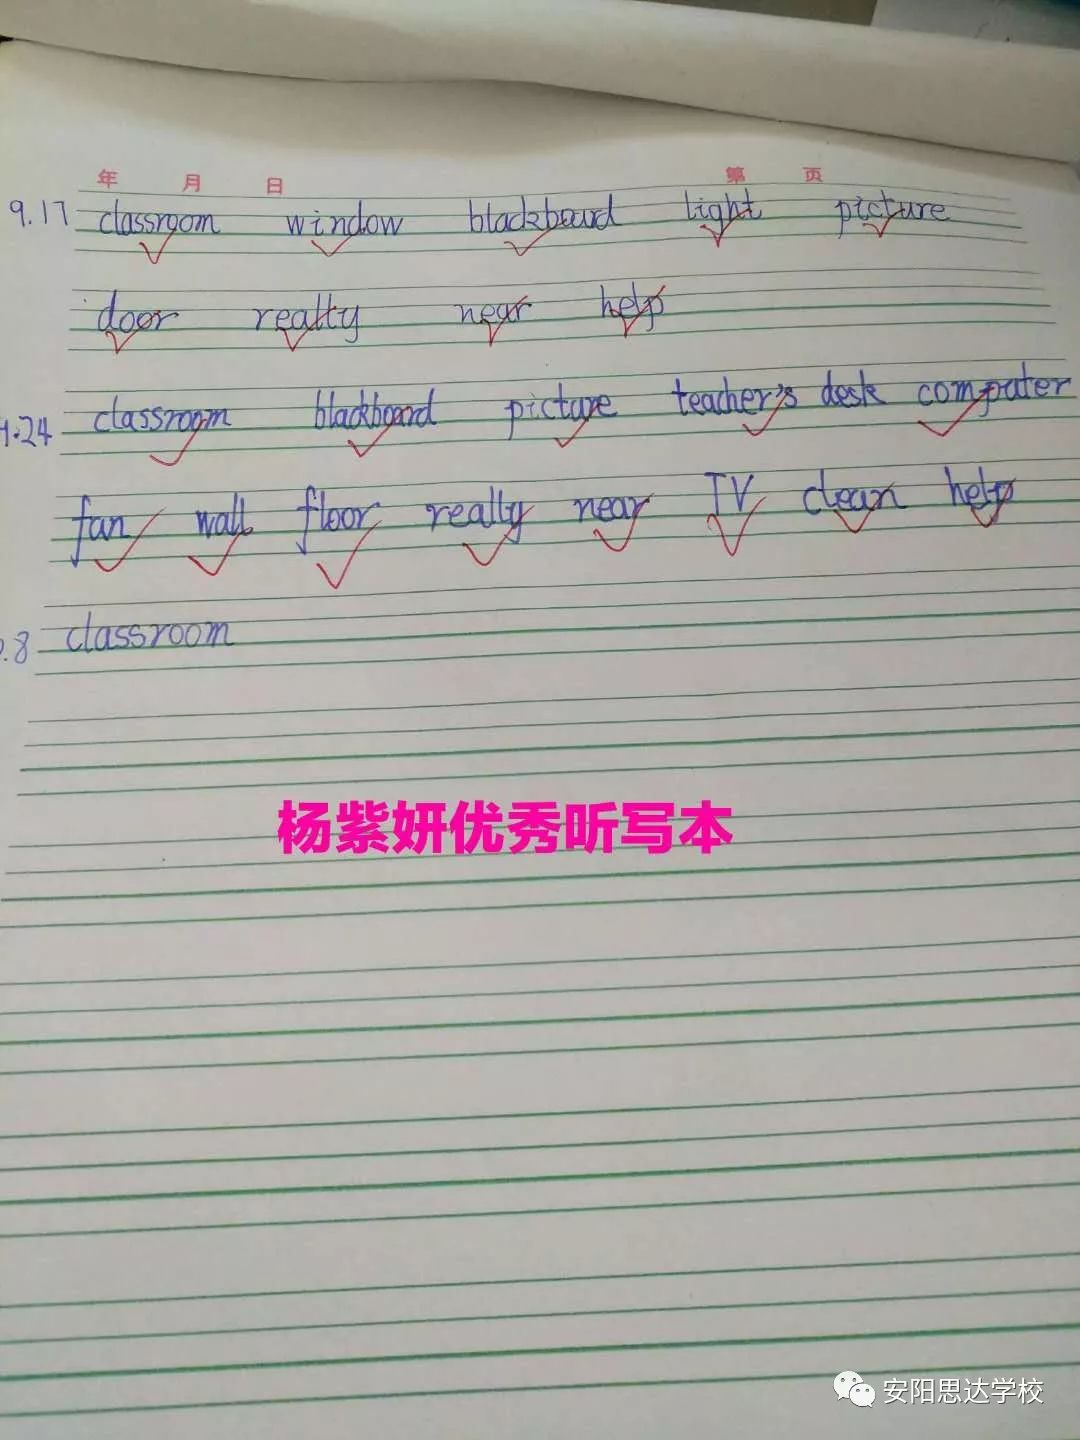 年 月 日 第 页
9.17 classroom window blackboard light picture
door really near help
9.24 classroom blackboard picture teacher's desk computer
fan wall floor really near TV clean help
.8 classroom
杨紫妍优秀听写本
安阳思达学校